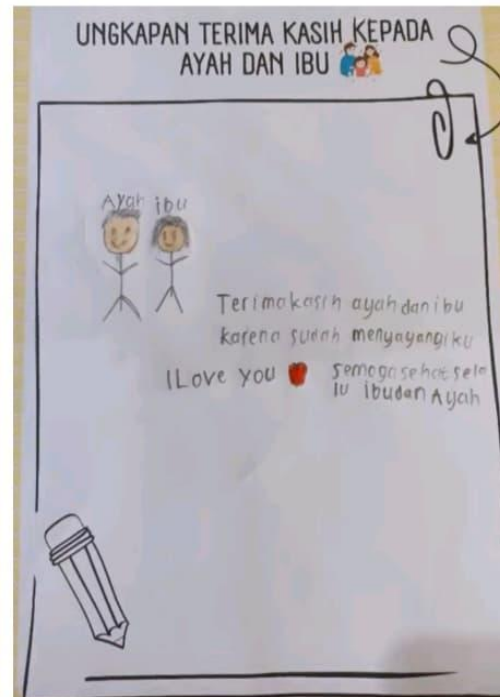 UNGKAPAN TERIMA KASIH KEPADA
AYAH DAN IBU
Ayah ibu
Terimakasih ayah dan ibu
karena sudah menyayangiku
I Love you
semoga sehat sela
lu ibu dan Ayah